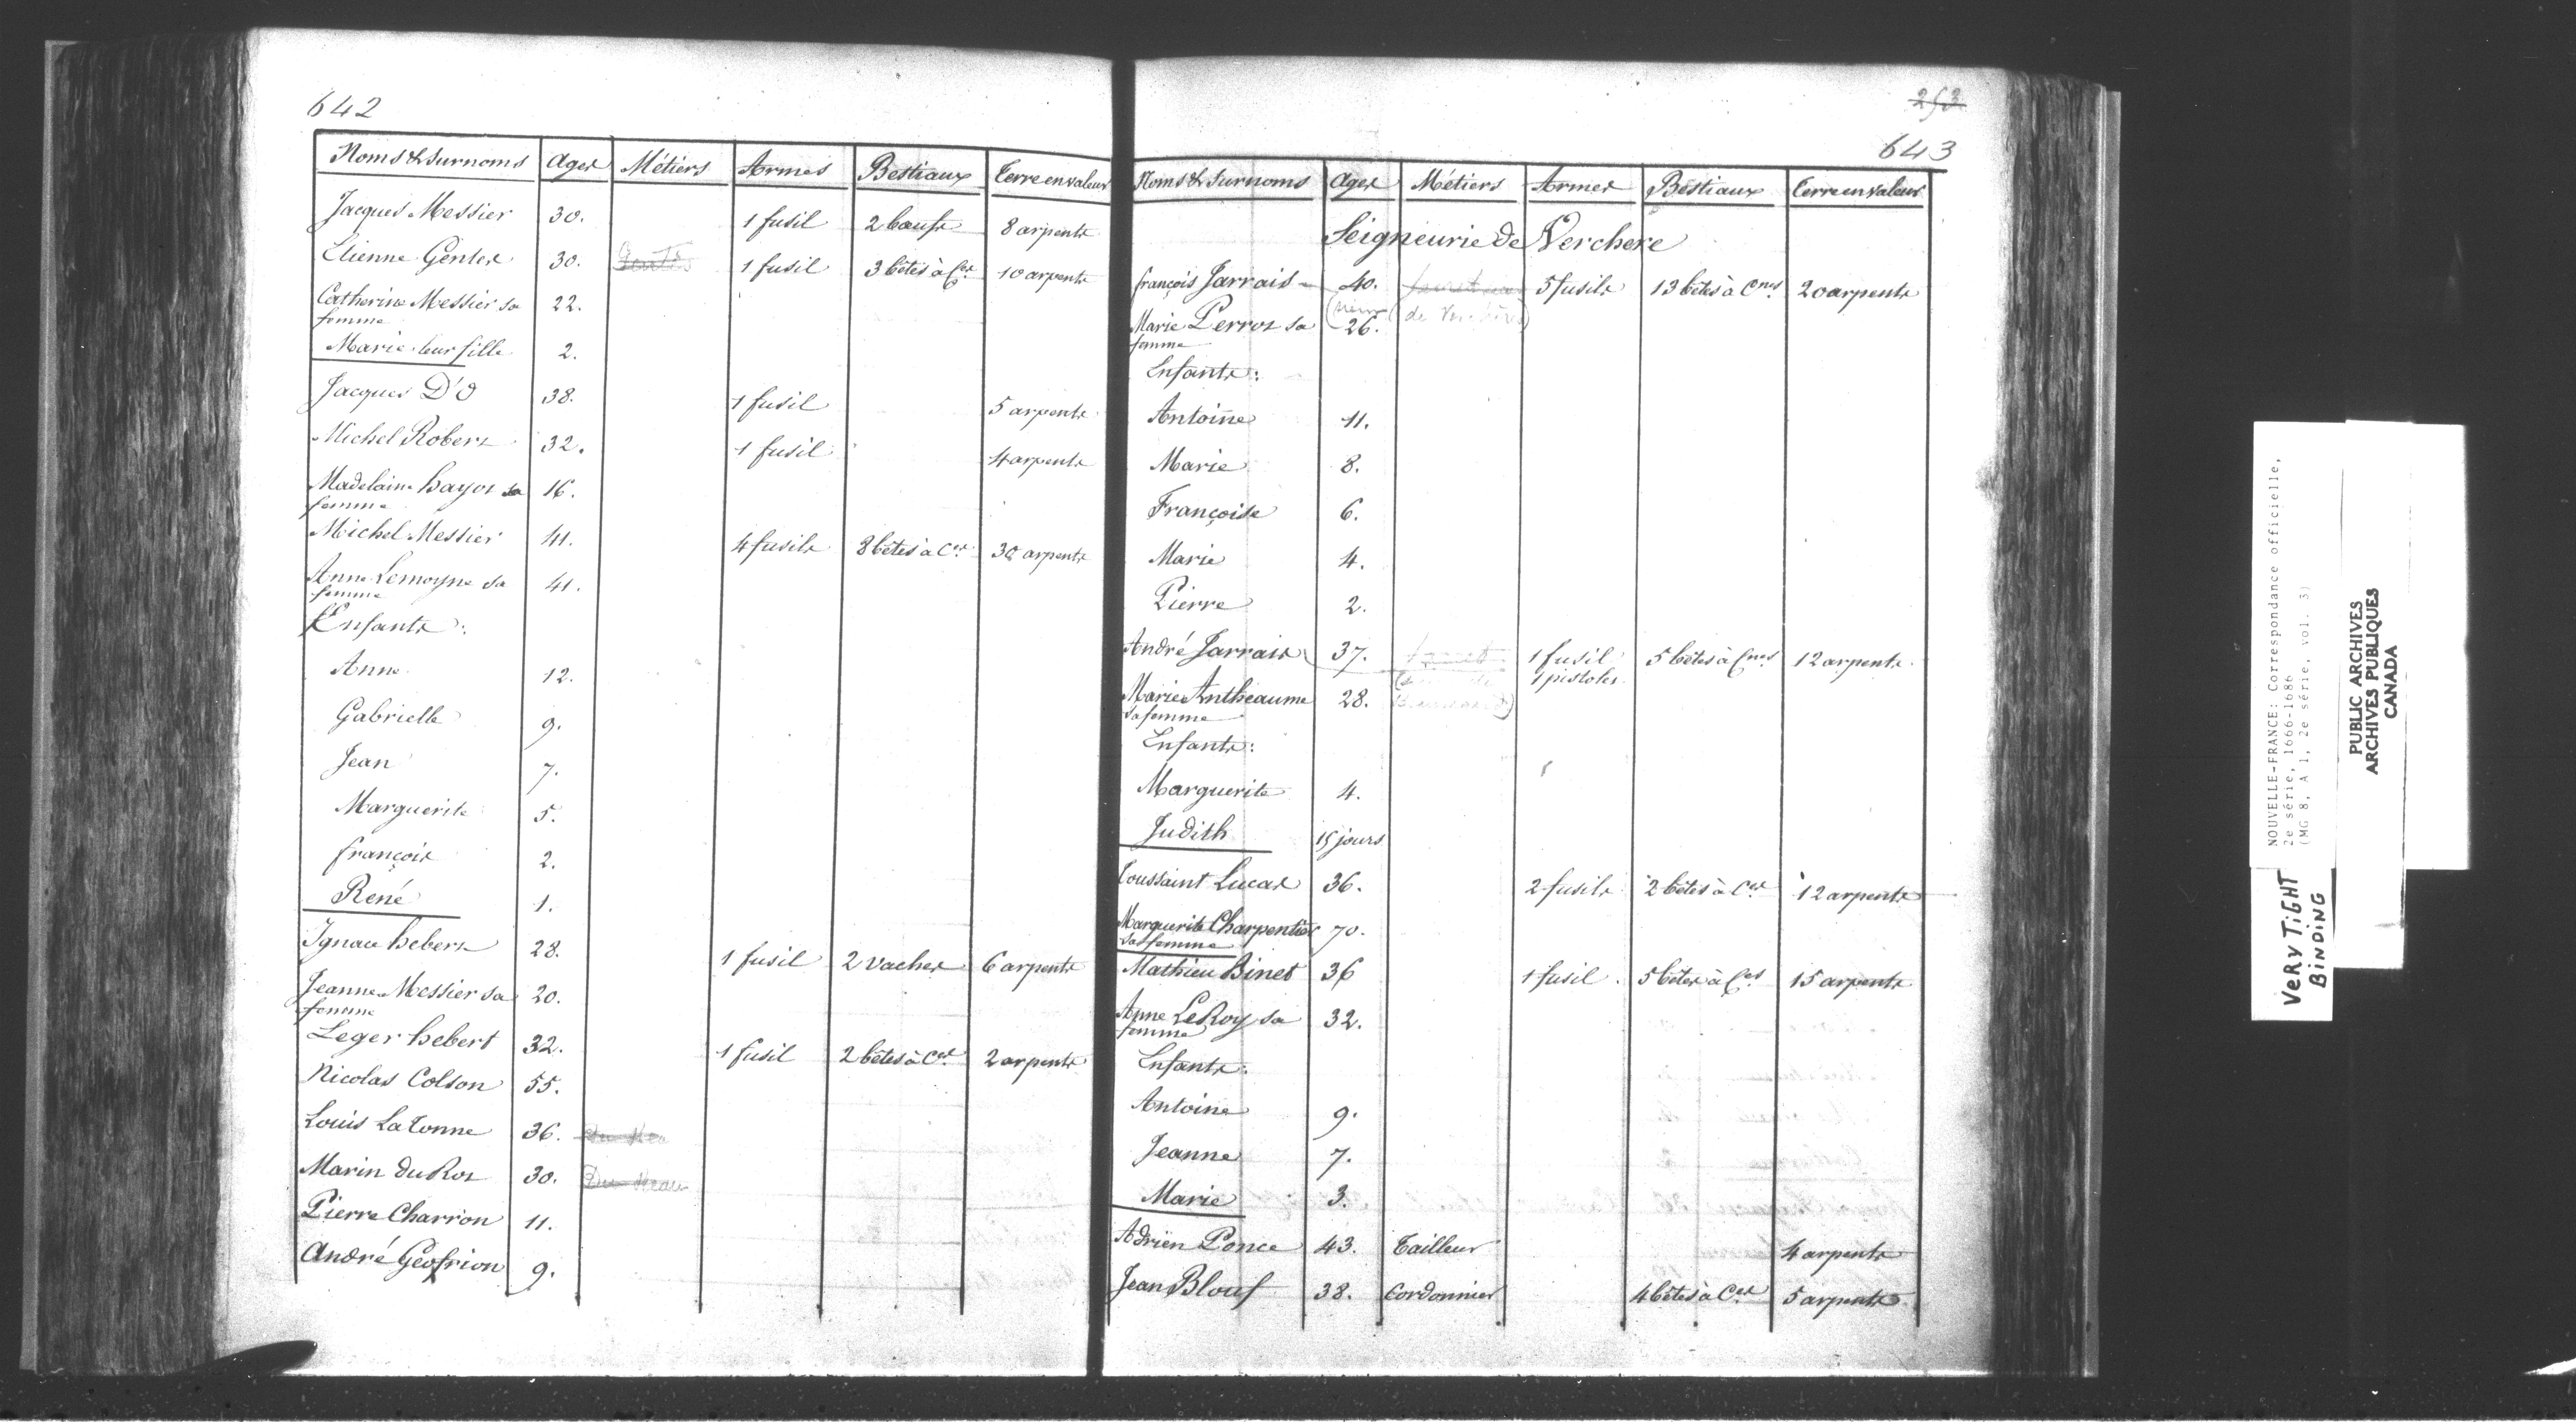 642
Noms & Surnoms Ages Métiers Armes Bestiaux Terre en valeur
Jacques Messier 30. 1 fusil 2 bœufs 8 arpents
Etienne Gentes 30. 1 fusil 3 bêtes à Ces 10 arpents
Catherine Messier sa femme 22.
Marie leur fille 2.
Jacques D'O 38. 1 fusil 5 arpents
Michel Robert 32. 1 fusil 4 arpents
Madelaine hayot sa femme 16.
Michel Messier 41. 4 fusils 8 bêtes à Ces 30 arpents
Anne Lemoyne sa femme 41.
Enfants:
Anne 12.
Gabrielle 9.
Jean 7.
Marguerite 5.
françois 2.
René 1.
Ignace hebert 28. 1 fusil 2 vaches 6 arpents
Jeanne Messier sa femme 20.
Leger hebert 32. 1 fusil 2 bêtes à Ces 2 arpents
Nicolas Colson 55.
Louis La Tonne 36.
Marin du Rot 30.
Pierre Charron 11.
André Geofrion 9.
253
643
Noms & Surnoms Ages Métiers Armes Bestiaux Terre en valeur
Seigneurie de Verchere
françois Jarrais 40. 5 fusils 13 bêtes à Cnes 20 arpents
de Verchères)
Marie Perrot sa femme 26.
Enfants:
Antoine 11.
Marie 8.
Françoise 6.
Marie 4.
Pierre 2.
André Jarrais 37. 1 fusil 5 bêtes à Cnes 12 arpents
1 pistolet
Marie Antheaume sa femme 28.
Enfants:
Marguerite 4.
Judith 15 jours
Toussaint Lucas 36. 2 fusils 2 bêtes à Ces 12 arpents
Marguerite Charpentier sa femme 70.
Mathieu Binet 36 1 fusil 5 bêtes à Ces 15 arpents
Anne LeRoy sa femme 32.
Enfants:
Antoine 9.
Jeanne 7.
Marie 3.
Adrien Ponce 43. Tailleur 4 arpents
Jean Blouf 38. Cordonnier 4 bêtes à Ces 5 arpents
NOUVELLE-FRANCE: Correspondance officielle,
2e série, 1666-1686
(MG 8, A 1, 2e série, vol. 3)
PUBLIC ARCHIVES
ARCHIVES PUBLIQUES
CANADA
VERY TIGHT
BINDING